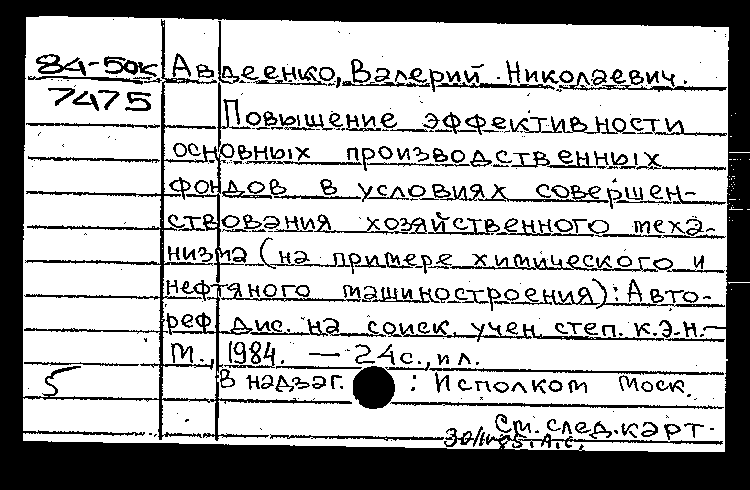 84-50к Авдеенко, Валерий Николаевич.
7475 Повышение эффективности
основных производственных
фондов в условиях совершен-
ствования хозяйственного меха-
низма (на примере химического и
нефтяного машиностроения): Авто-
реф. дис. на соиск. учен. степ. к.э.н. -
М., 1984. — 24 с., ил.
5 В надзаг. : Исполком Моск.
См. след. карт.